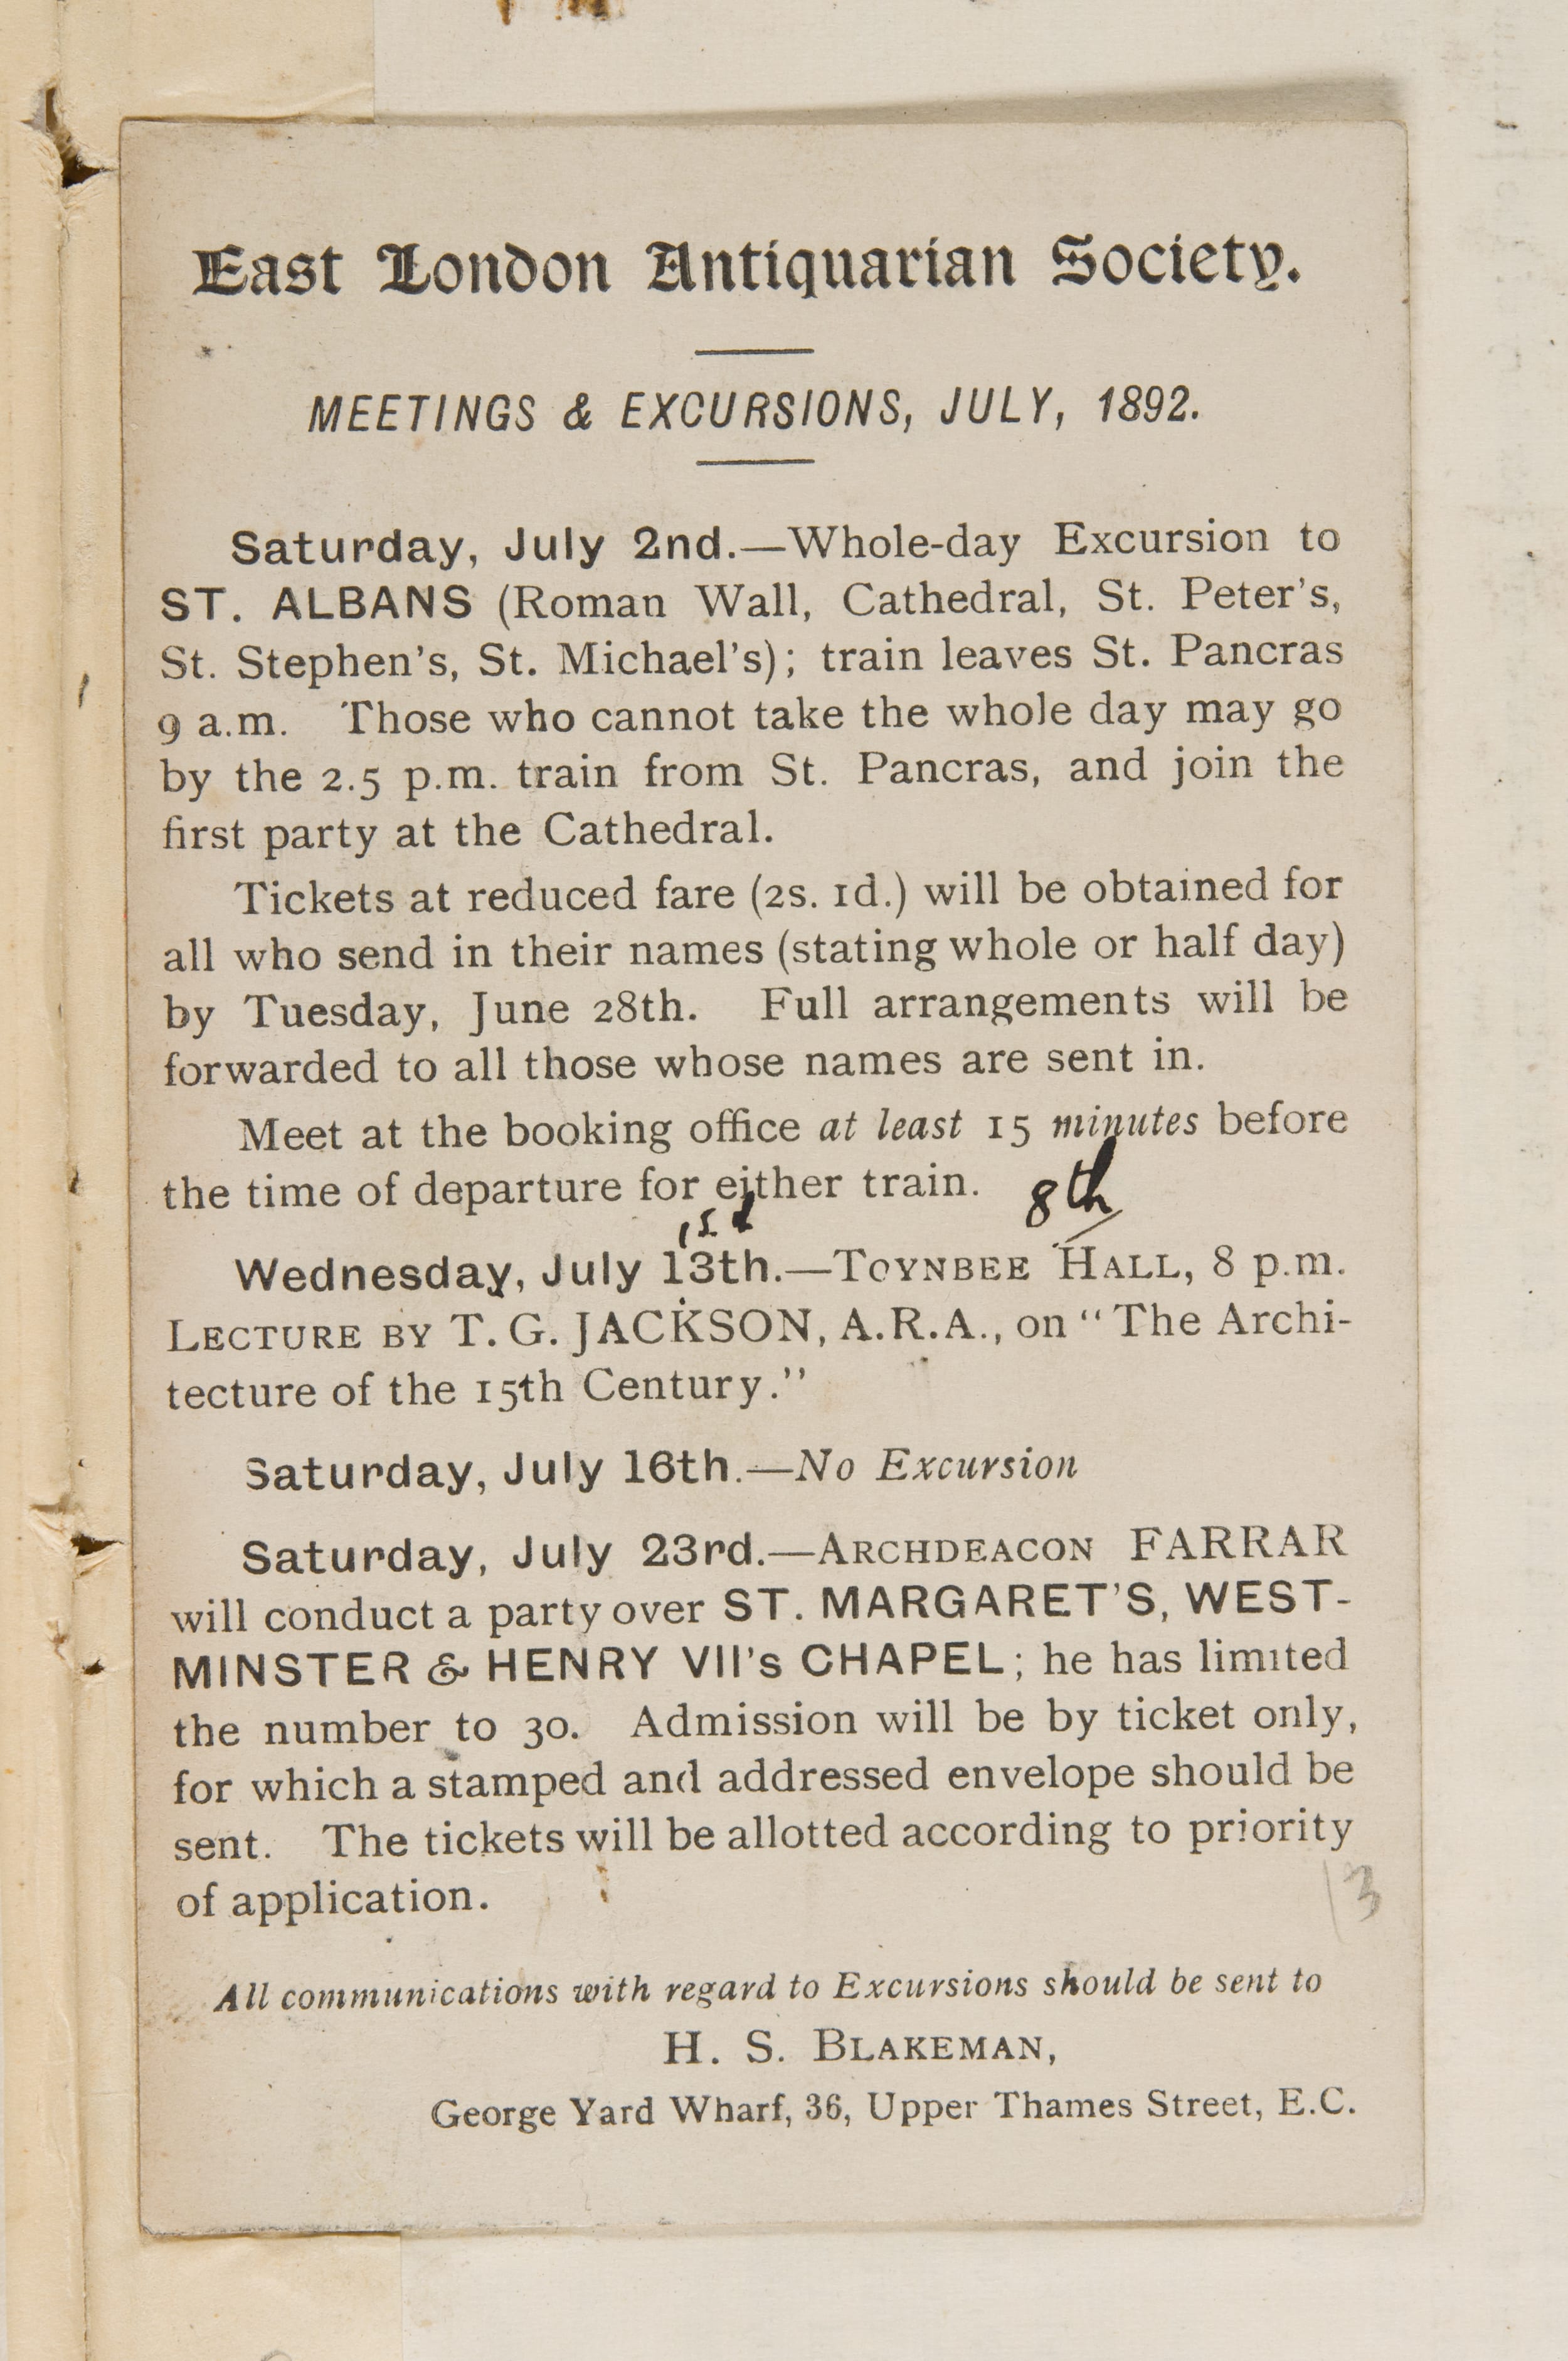 East London Antiquarian Society.
MEETINGS & EXCURSIONS, JULY, 1892.
Saturday, July 2nd.—Whole-day Excursion to
ST. ALBANS (Roman Wall, Cathedral, St. Peter's,
St. Stephen's, St. Michael's); train leaves St. Pancras
9 a.m. Those who cannot take the whole day may go
by the 2.5 p.m. train from St. Pancras, and join the
first party at the Cathedral.
Tickets at reduced fare (2s. 1d.) will be obtained for
all who send in their names (stating whole or half day)
by Tuesday, June 28th. Full arrangements will be
forwarded to all those whose names are sent in.
Meet at the booking office at least 15 minutes before
the time of departure for either train.
8th
Wednesday, July 13th.—TOYNBEE HALL, 8 p.m.
LECTURE BY T. G. JACKSON, A.R.A., on "The Archi-
tecture of the 15th Century."
Saturday, July 16th.—No Excursion
Saturday, July 23rd.—ARCHDEACON FARRAR
will conduct a party over ST. MARGARET'S, WEST-
MINSTER & HENRY VII's CHAPEL; he has limited
the number to 30. Admission will be by ticket only,
for which a stamped and addressed envelope should be
sent. The tickets will be allotted according to priority
of application.
13
All communications with regard to Excursions should be sent to
H. S. BLAKEMAN,
George Yard Wharf, 36, Upper Thames Street, E.C.